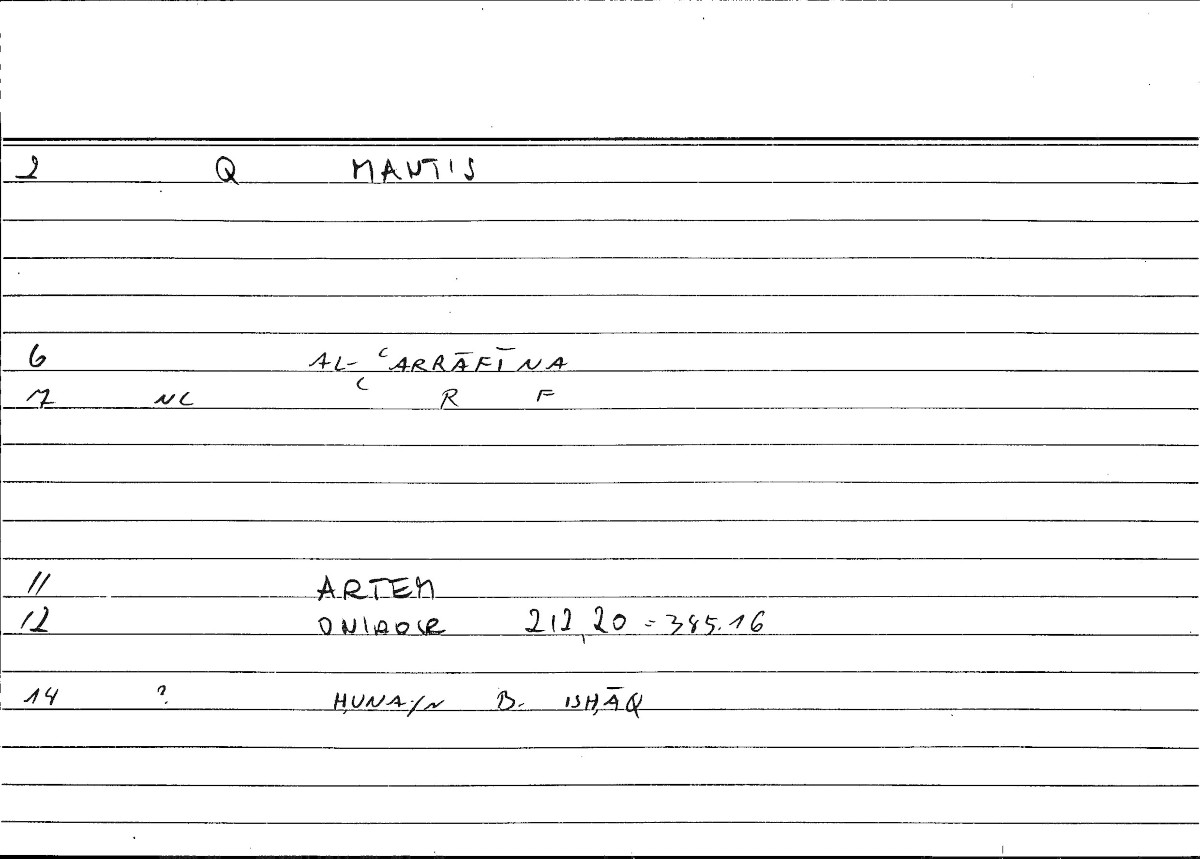 2 Q MANTIS
6 AL- ʿARRĀFĪNA
7 NC ʿ R F
11 ARTEM
12 ONIROCR 212,20 = 385.16
14 ? ḤUNAYN B. ISḤĀQ